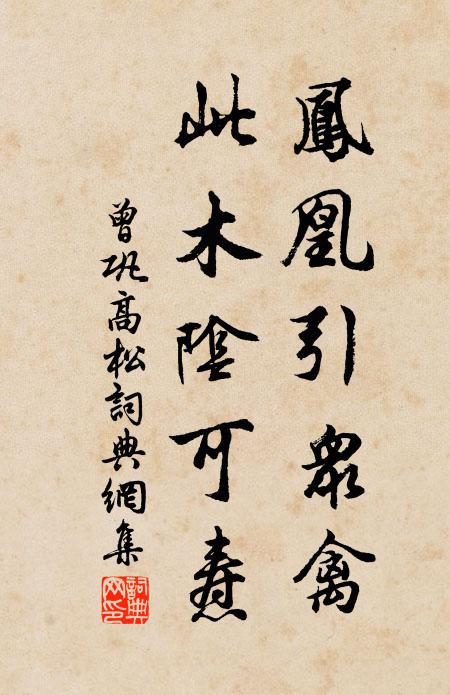 鳳凰引眾禽
此木陰可燾
曾巩高松詞典網集
詞典网印